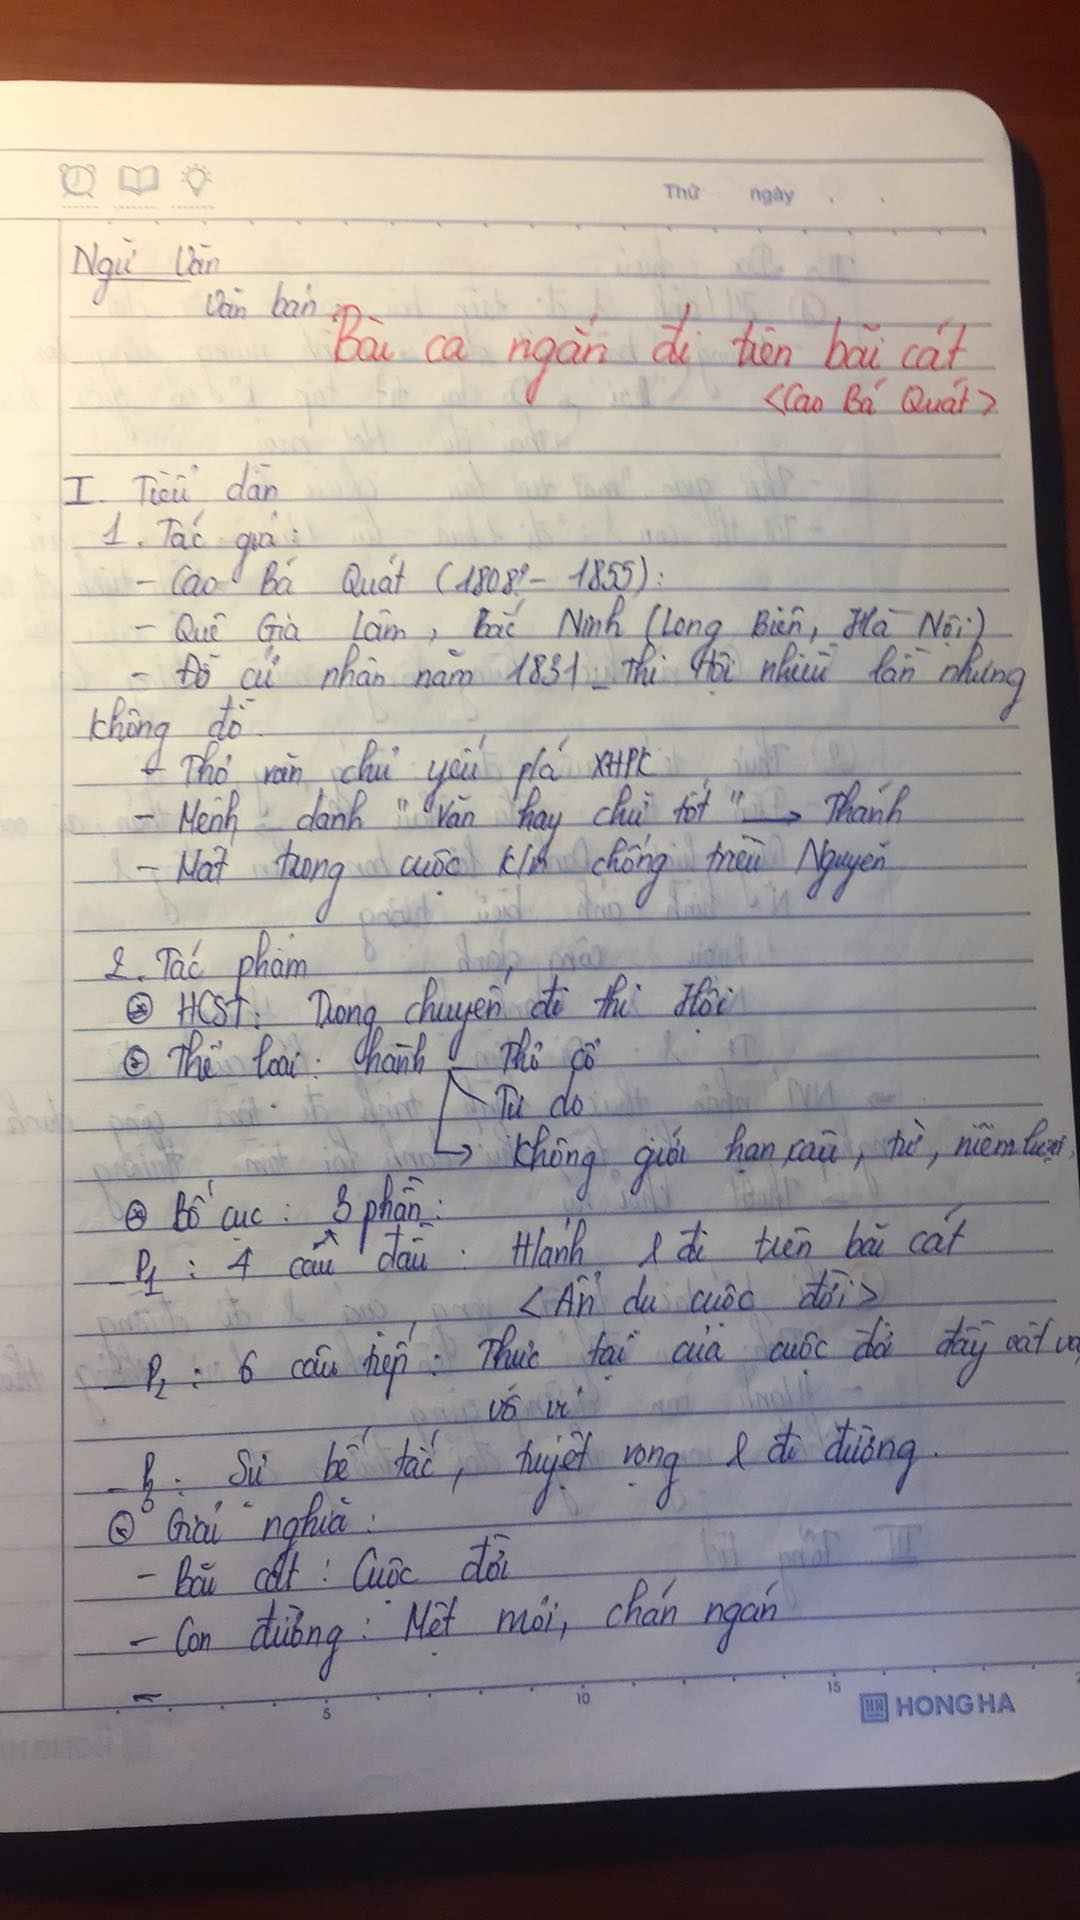 Thứ ngày
Ngữ Văn
Văn bản:
Bài ca ngắn đi trên bãi cát
<Cao Bá Quát>
I. Tiểu dẫn
1. Tác giả:
- Cao Bá Quát (1808? - 1855):
- Quê Gia Lâm, Bắc Ninh (Long Biên, Hà Nội)
- Đỗ cử nhân năm 1831 - Thi Hội nhiều lần nhưng
không đỗ
- Thơ văn chủ yếu p/á XHPK
- Mệnh danh "Văn hay chữ tốt" → Thánh
- Mất trong cuộc k/n chống triều Nguyễn
2. Tác phẩm
* HCST: Trong chuyến đi thi Hội
* Thể loại: hành - Thơ cổ
Tự do
→ Không giới hạn câu, từ, niêm luật,
* Bố cục: 3 phần:
- P1: 4 câu đầu: H/ảnh đi trên bãi cát
<Ẩn dụ cuộc đời>
- P2: 6 câu tiếp: Thực tại của cuộc đời đầy vất vả
vô vị
- P3: Sự bế tắc, tuyệt vọng đi đường.
* Giải nghĩa:
- Bãi cát: Cuộc đời
- Con đường: Mệt mỏi, chán ngán
-
5 10 15
HONG HA